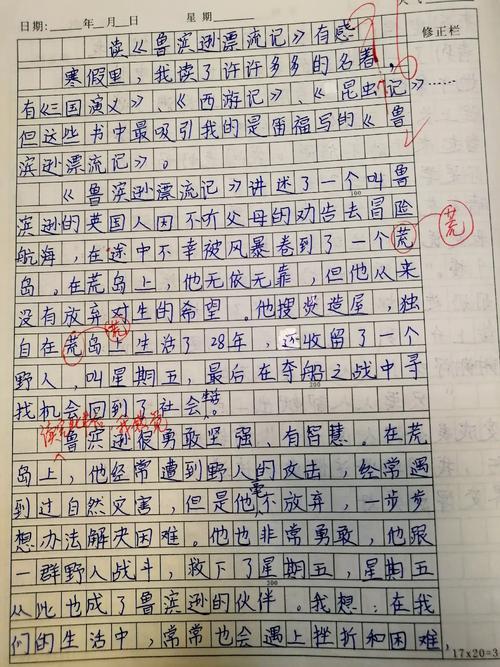 日期：  年 月 日  星期
修正栏
读《鲁滨逊漂流记》有感
寒假里，我读了许许多多的名著，
有《三国演义》、《西游记》、《昆虫记》……
但这些书中最吸引我的是雷福写的《鲁
滨逊漂流记》。
《鲁滨逊漂流记》讲述了一个叫鲁
100
滨逊的英国人因不听父母的劝告去冒险
航海，在途中不幸被风暴卷到了一个荒
荒
岛。在荒岛上，他无依无靠，但他从来
没有放弃对生的希望。他搜岌造屋，独
荒
自在荒岛上生活了28年，还收留了一个
野人，叫星期五，最后在夺船之战中寻
200
找机会回到了社会。
鲁滨逊很勇敢坚强、有智慧。在荒
岛上，他经常遭到野人的攻击，经常遇
到过自然灾害，但是他毫不放弃，一步步
想办法解决困难。他也非常勇敢，他跟
一群野人战斗，救下了星期五，星期五
300
从此也成了鲁滨逊的伙伴。我想：在我
们的生活中，常常也会遇上挫折和困难，
17×20=3